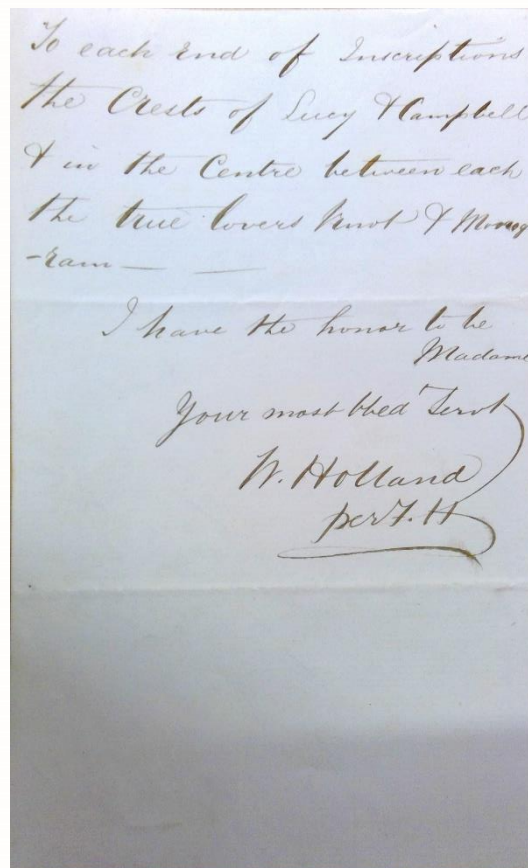 To each End of Inscriptions
the Crests of Lucy & Campbell
& in the Centre between each
the true lovers knot & Monog
-ram —  —
I have the honor to be
Madame
Your most Obed Servt
W. Holland
per F. H